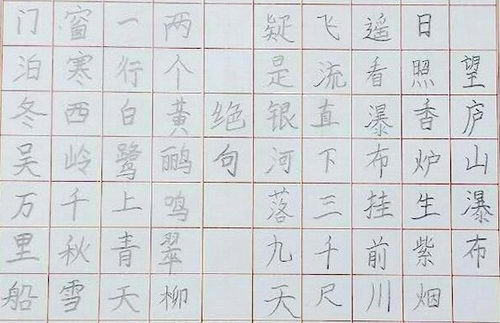 望庐山瀑布
日照香炉生紫烟
遥看瀑布挂前川
飞流直下三千尺
疑是银河落九天
绝句
两个黄鹂鸣翠柳
一行白鹭上青天
窗寒西岭千秋雪
门泊冬吴万里船